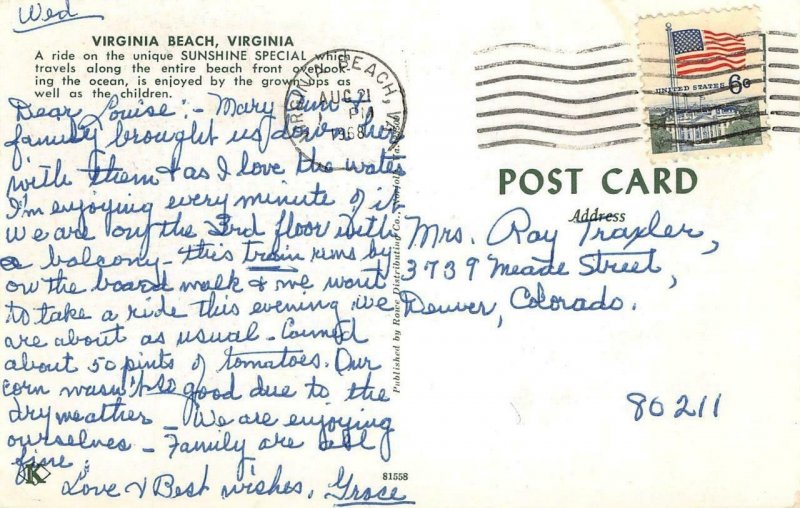 Wed
VIRGINIA BEACH, VIRGINIA
A ride on the unique SUNSHINE SPECIAL which
travels along the entire beach front overlook-
ing the ocean, is enjoyed by the grown ups as
well as the children.
Dear Louise:- Mary Ann &
family brought us down here
with them & as I love the water
I'm enjoying every minute of it
We are on the 3rd floor with
a balcony - this train runs by
on the board walk & we want
to take a ride this evening we
are about as usual - Canned
about 50 pints of tomatoes. Our
corn wasn't so good due to the
dry weather - We are enjoying
ourselves - Family are all
fine.
Love & Best wishes, Grace
K
81558
Published by Rowe Distributing Co., Norfolk
VIRGINIA BEACH, VA
AUG 21
PM
1968
UNITED STATES 6c
POST CARD
Address
Mrs. Ray Traxler,
3739 Meade Street,
Denver, Colorado.
80211